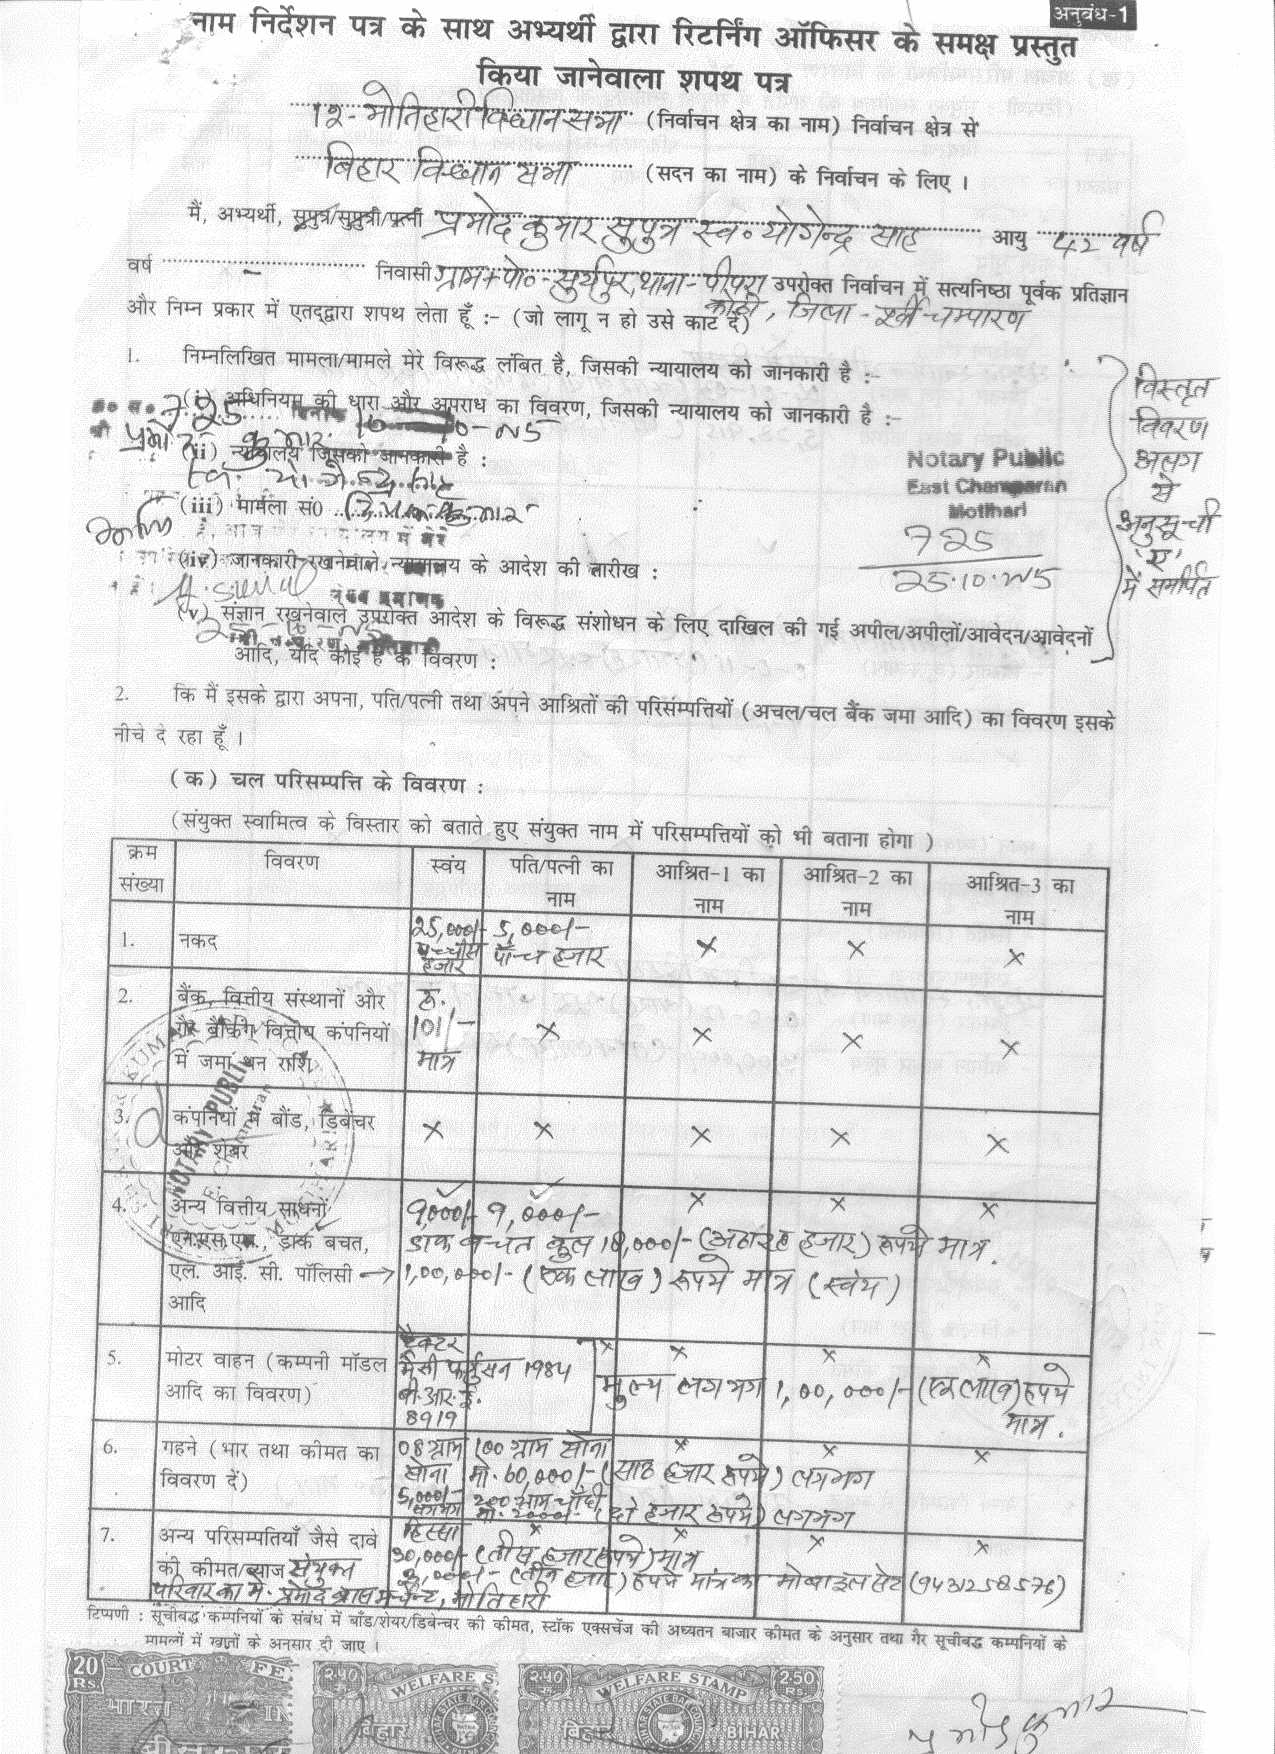 अनुबंध-1
नाम निर्देशन पत्र के साथ अभ्यर्थी द्वारा रिटर्निंग ऑफिसर के समक्ष प्रस्तुत
किया जानेवाला शपथ पत्र
12-मोतिहारी विधान सभा (निर्वाचन क्षेत्र का नाम) निर्वाचन क्षेत्र से
बिहार विधान सभा (सदन का नाम) के निर्वाचन के लिए ।
मैं, अभ्यर्थी, सुपुत्र/सुपुत्री/पत्नी प्रमोद कुमार सुपुत्र स्व० योगेन्द्र साह आयु 42 वर्ष
वर्ष - निवासी ग्राम+पो०-सुर्यपुर, थाना-पीपरा उपरोक्त निर्वाचन में सत्यनिष्ठा पूर्वक प्रतिज्ञान
कोठी, जिला-पूर्वी चम्पारण
और निम्न प्रकार में एतद्द्वारा शपथ लेता हूँ :- (जो लागू न हो उसे काट दें)
1. निम्नलिखित मामला/मामले मेरे विरूद्ध लंबित है, जिसकी न्यायालय को जानकारी है :-
(i) अधिनियम की धारा और अपराध का विवरण, जिसकी न्यायालय को जानकारी है :-
725
(ii) न्यायालय जिसको जानकारी है :
(iii) मामला सं0
(iv) जानकारी रखनेवाले न्यायालय के आदेश की तारीख :
(v) संज्ञान रखनेवाले उपरोक्त आदेश के विरूद्ध संशोधन के लिए दाखिल की गई अपील/अपीलों/आवेदन/आवेदनों
आदि, यदि कोई है के विवरण :
विस्तृत
विवरण
अलग
से
अनुसूची
'ए'
में समर्पित
Notary Public
East Champaran
Motihari
725
25.10.05
2. कि मैं इसके द्वारा अपना, पति/पत्नी तथा अपने आश्रितों की परिसंम्पत्तियों (अचल/चल बैंक जमा आदि) का विवरण इसके
नीचे दे रहा हूँ ।
(क) चल परिसम्पत्ति के विवरण :
(संयुक्त स्वामित्व के विस्तार को बताते हुए संयुक्त नाम में परिसम्पत्तियों को भी बताना होगा )
क्रम संख्या विवरण स्वंय पति/पत्नी का नाम आश्रित-1 का नाम आश्रित-2 का नाम आश्रित-3 का नाम
1. नकद 25,000/- पच्चीस हजार 5,000/- पाँच हजार × × ×
2. बैंक, वित्तीय संस्थानों और गैर बैंकिंग वित्तीय कंपनियों में जमा धन राशि रु. 101/- मात्र × × × ×
3. कंपनियों में बौंड, डिबेंचर और शेयर × × × × ×
4. अन्य वित्तीय साधनों 9,000/- 9,000/- × × ×
एन.एस.एस., डाक बचत, डाक बचत कुल 18,000/- (अठारह हजार) रूपये मात्र.
एल. आई. सी. पॉलिसी → 1,00,000/- (एक लाख) रूपये मात्र (स्वंय)
आदि
5. मोटर वाहन (कम्पनी मॉडल आदि का विवरण) ट्रैक्टर मैसी फर्गुसन 1984 बी.आर.ई. 8919 × × × ×
मुल्य लगभग 1,00,000/- (एक लाख) रूपये मात्र.
6. गहने (भार तथा कीमत का विवरण दें) 08 ग्राम सोना 5,000/- लगभग 100 ग्राम सोना × × ×
मो. 60,000/- (साठ हजार रूपये) लगभग
200 ग्राम चाँदी मो. 2000/- (दो हजार रूपये) लगभग
7. अन्य परिसम्पतियाँ जैसे दावे की कीमत/ब्याज हिस्सा × × × ×
30,000/- (तीस हजार रूपये) मात्र
3,000/- (तीन हजार) रूपये मात्र का मोबाइल सेट (9431258576)
संयुक्त परिवार का मे. प्रमोद
मोतिहारी
टिप्पणी : सूचीबद्ध कम्पनियों के संबंध में बाँड/शेयर/डिबेन्चर की कीमत, स्टॉक एक्सचेंज की अध्यतन बाजार कीमत के अनुसार तथा गैर सूचीबद्ध कम्पनियों के
मामलों में खातों के अनुसार दी जाए ।
NOTARY PUBLIC
20 Rs. COURT FEE भारत
2.50 WELFARE S बिहार
2.50 WELFARE STAMP 2.50 बिहार BIHAR
प्रमोद कुमार